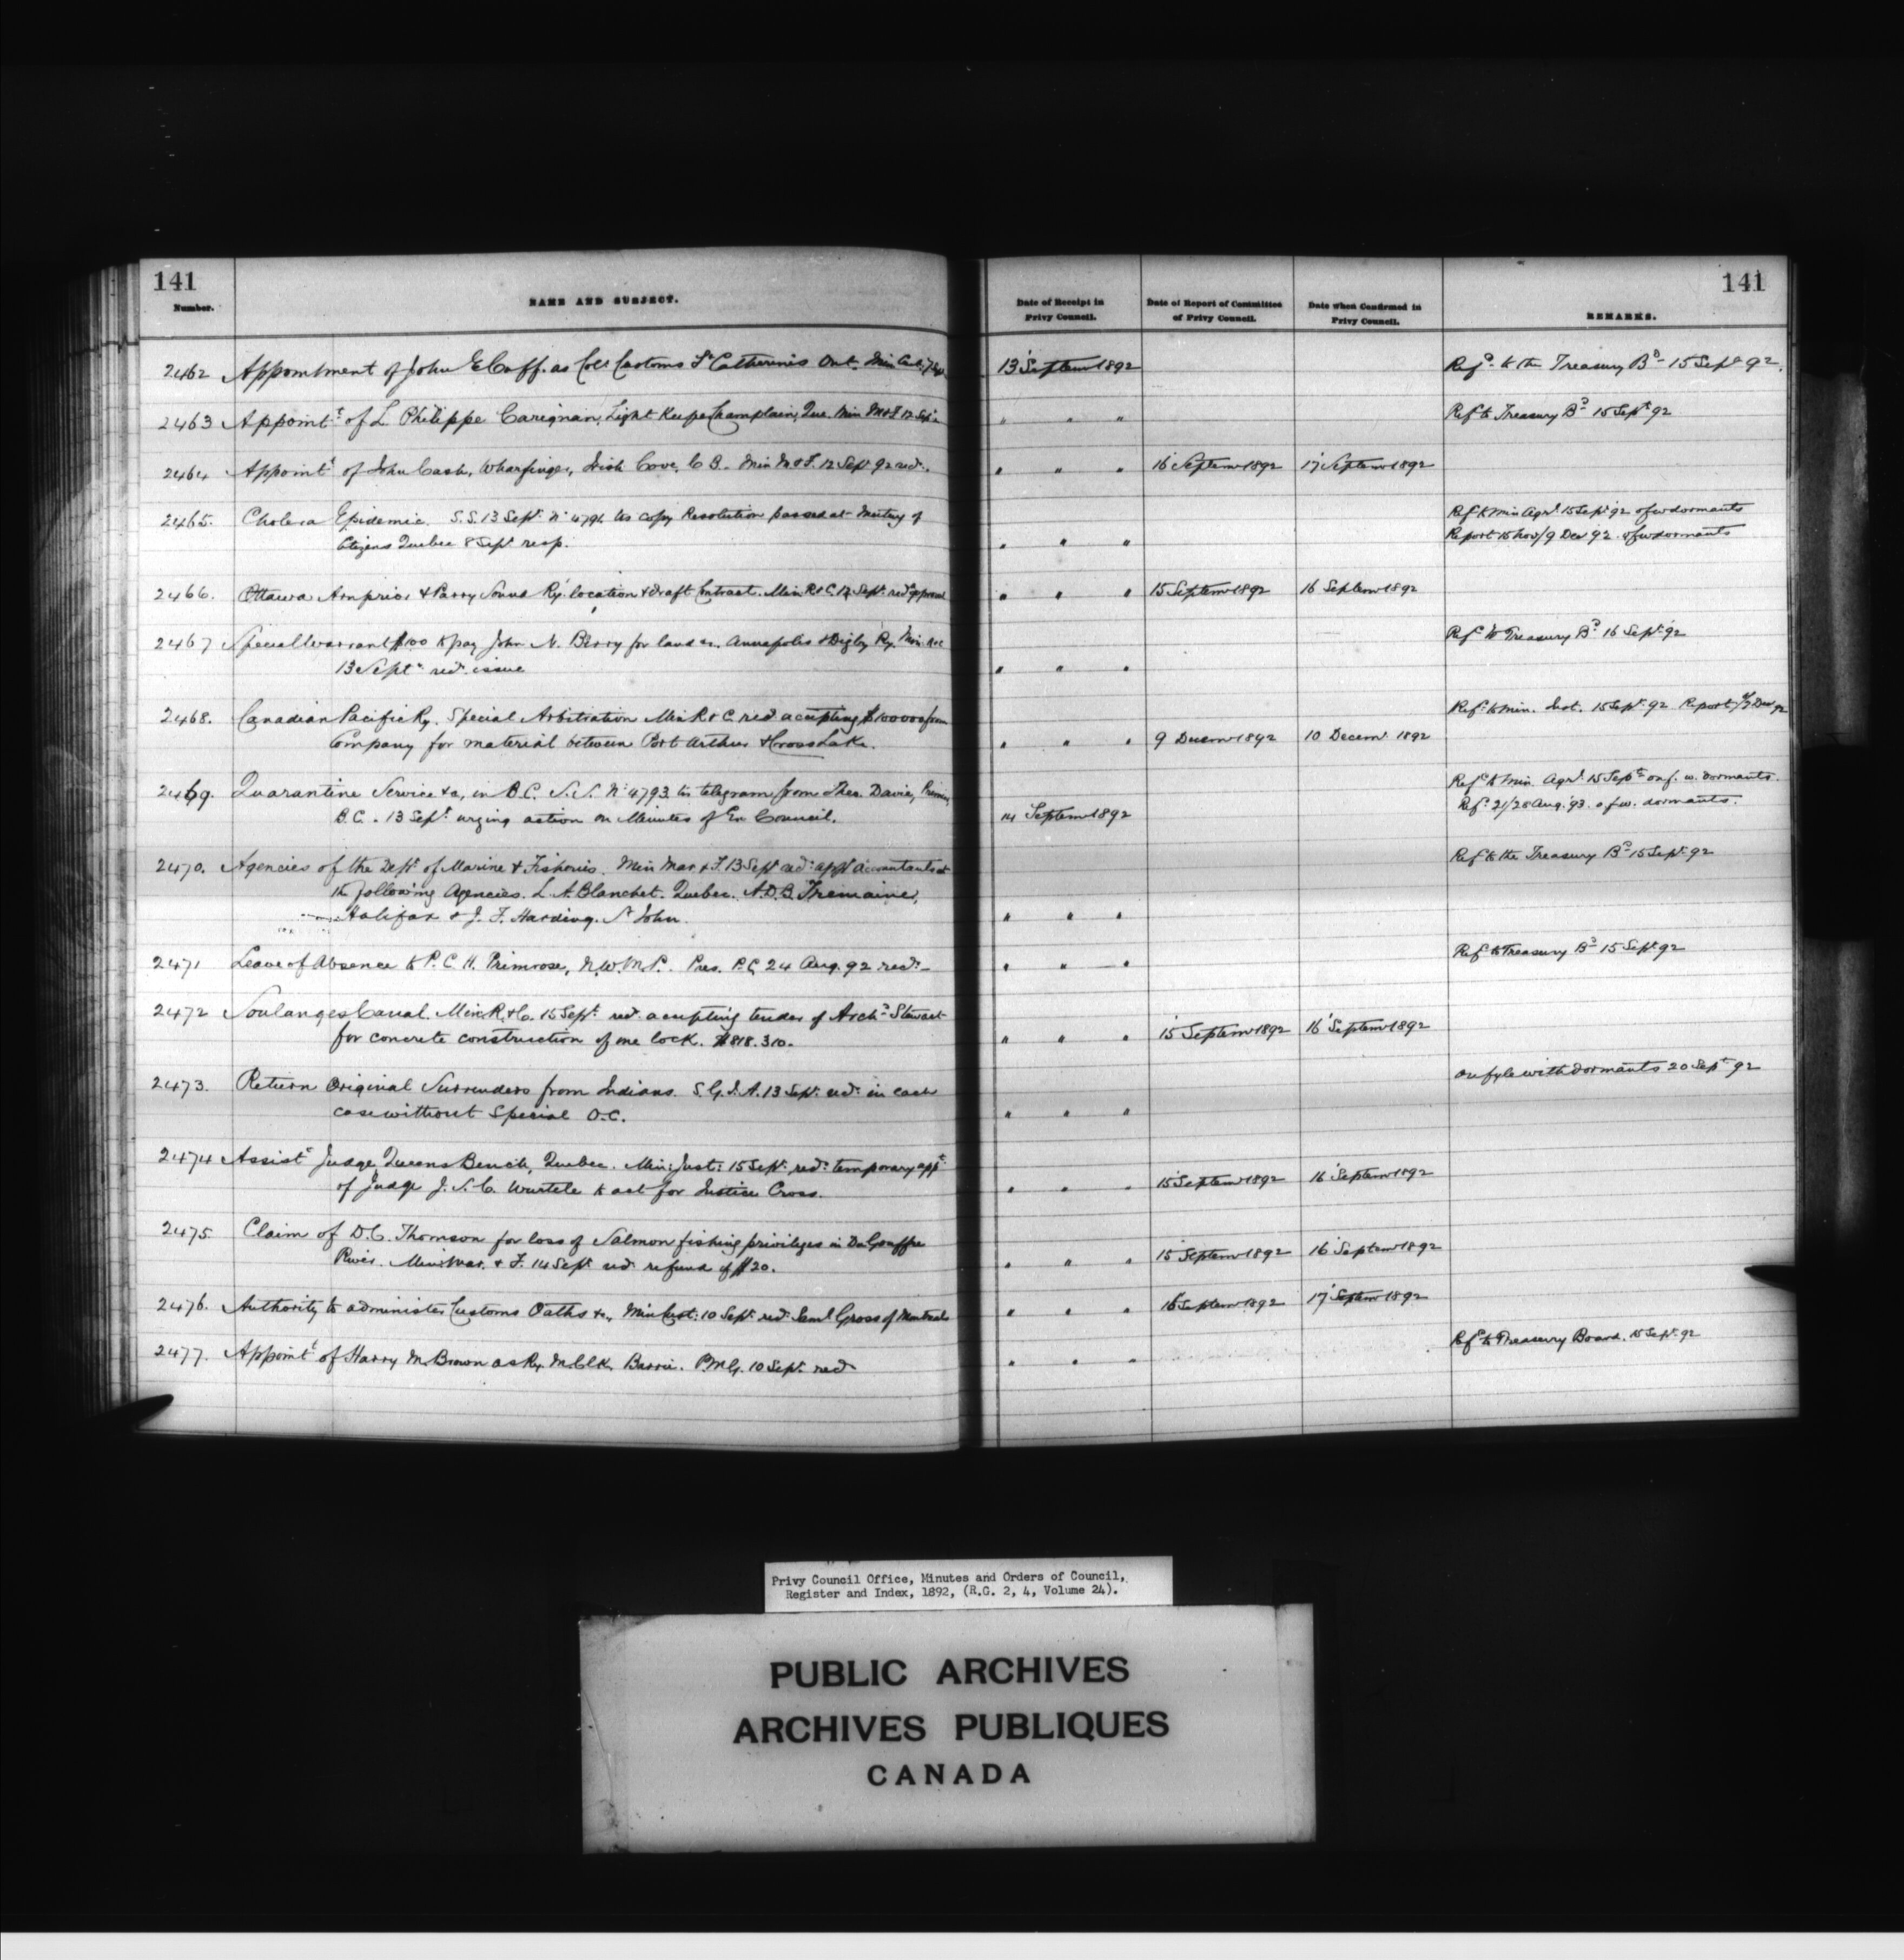 141
141
Number.
NAME AND SUBJECT.
Date of Receipt in Privy Council.
Date of Report of Committee of Privy Council.
Date when Confirmed in Privy Council.
REMARKS.
2462 Appointment of John E Cuff. as Coll Customs St Catherines Ont. Min Cust. 13 Septem 1892 Refd to the Treasury Bd 15 Sept 92.
2463 Appointt of L Philippe Carignan, Light Keeper Champlain, Que. Min M&F 12 Sept " " " Ref to Treasury Bd 15 Sept 92
2464 Appointt of John Cash, Wharfinger, Irish Cove, C B. Min M&F. 12 Sept 92 recd. " " " 16 Septem 1892 17 Septem 1892
2465. Cholera Epidemic. S.S. 13 Sept. No 4791. copy Resolution passed at Meeting of Ref to Min Agrl 15 Sept 92 ofw dormants
Citizens Quebec 8 Sept resp. " " " Report 15 Nov/9 Dec 92. ofw dormants
2466. Ottawa Arnprior & Parry Sound Ry. location & draft Contract. Min R&C. 12 Sept. recd approval " " " 15 Septem 1892 16 Septem 1892
2467 Special Warrant $100 to pay John N. Berry for land &c. Annapolis & Digby Ry. Min R&C Refd to Treasury Bd 16 Sept 92
13 Sept recd issue " " "
2468. Canadian Pacific Ry. Special Arbitration Min R&C recd accepting $100000 from Refd to Min. Just. 15 Sept. 92 Report 9 Dec 92
Company for material between Port Arthur & Cross Lake. " " " 9 Decem 1892 10 Decem 1892
2469. Quarantine Service &c, in B.C. S.S. No 4793. telegram from Theo. Davie, Premier, Refd to Min. Agrl. 15 Sept onf. w. dormants.
B.C. 13 Sept. urging action on Minutes of Ex Council. 14 Septem 1892 Refd 21/28 Aug. 93. ofw. dormants.
2470. Agencies of the Dept of Marine & Fisheries. Min Mar & F. 13 Sept recd appt accountants at Refd to the Treasury Bd 15 Sept. 92
the following Agencies. L. A. Blanchet. Quebec. A.D.B. Tremaine,
Halifax & J. F. Harding. St John. " " "
2471 Leave of Absence to P. C. H. Primrose, N.W.M.P. Pres. P.C. 24 Aug. 92 recd. " " " Refd to Treasury Bd 15 Sept 92
2472 Soulanges Canal. Min R. & C. 15 Sept recd accepting tender of Archd Stewart
for concrete construction of one lock. $818.310. " " " 15 Septem 1892 16 Septem 1892
2473. Return Original Surrenders from Indians. S.G.I.A. 13 Sept. recd. in each on fyle with dormants 20 Sept 92
case without Special O.C. " " "
2474 Assistt Judge Queens Bench, Quebec. Min: Just: 15 Sept. recd. temporary appt
of Judge J. S. C. Wurtele to act for Justice Cross. " " " 15 Septem 1892 16 Septem 1892
2475. Claim of D. C. Thomson for loss of Salmon fishing privileges in Du Gouffre
River. Min Mar. & F. 14 Sept recd refund of $20. " " " 15 Septem 1892 16 Septem 1892
2476. Authority to administer Customs Oaths &c., Min Cust: 10 Sept. recd. Saml Gross of Montreal " " " 16 Septem 1892 17 Septem 1892
2477. Appointt of Harry M Brown as Ry. M. Clk. Barrie. P.M.G. 10 Sept. recd " " " Refd to Treasury Board. 15 Sept. 92
Privy Council Office, Minutes and Orders of Council,
Register and Index, 1892, (R.G. 2, 4, Volume 24).
PUBLIC ARCHIVES
ARCHIVES PUBLIQUES
CANADA